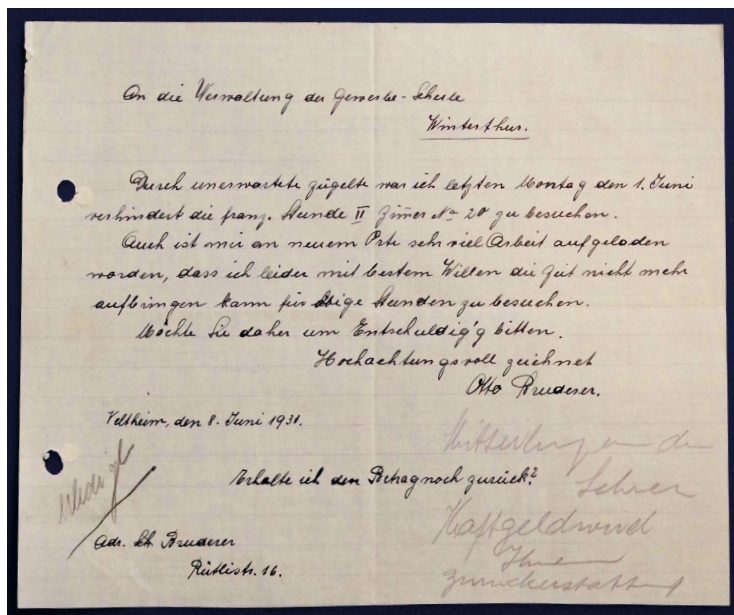 An die Verwaltung der Gewerbe-Schule
Winterthur.
Durch unerwartete zügelte war ich letzten Montag den 1. Juni
verhindert die franz. Stunde II Zimer No 20 zu besuchen.
Auch ist mir an neuem Orte sehr viel Arbeit aufgeladen
worden, dass ich leider mit bestem Willen die Zeit nicht mehr
aufbringen kann für obige Stunden zu besuchen.
Möchte Sie daher um Entschuldig'g bitten.
Hochachtungsvoll zeichnet
Otto Bruderer.
Veltheim, den 8. Juni 1931.
Mitteilung an den
Lehrer
Erhalte ich den Betrag noch zurück?
Haftgeld wird
Ihnen
zurückerstattet
erledigt
Adr. Bruderer
Rütlistr. 16.